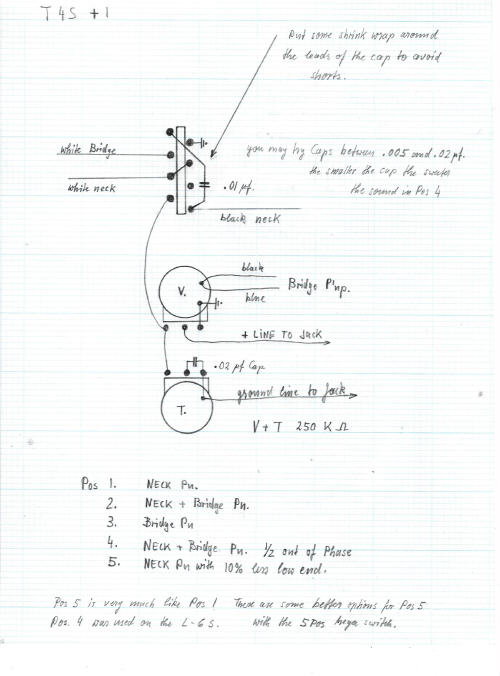 T4S +1
Put some shrink wrap around
the leads of the cap to avoid
shorts.
white Bridge
you may try Caps between .005 and .02 µf.
the smaller the cap the sweeter
the sound in Pos 4
white neck
.01 µf.
black neck
black
V.
Bridge P'up.
blue
+ LINE TO JACK
.02 µf Cap
ground line to Jack
T.
V+T 250 K Ω
Pos 1. NECK Pu.
2. NECK + Bridge Pu.
3. Bridge Pu
4. NECK + Bridge Pu. 1/2 out of Phase
5. NECK Pu with 10% less low end.
Pos 5 is very much like Pos 1 There are some better options for Pos 5
Pos. 4 was used on the L-6 S. with the 5 Pos switch.